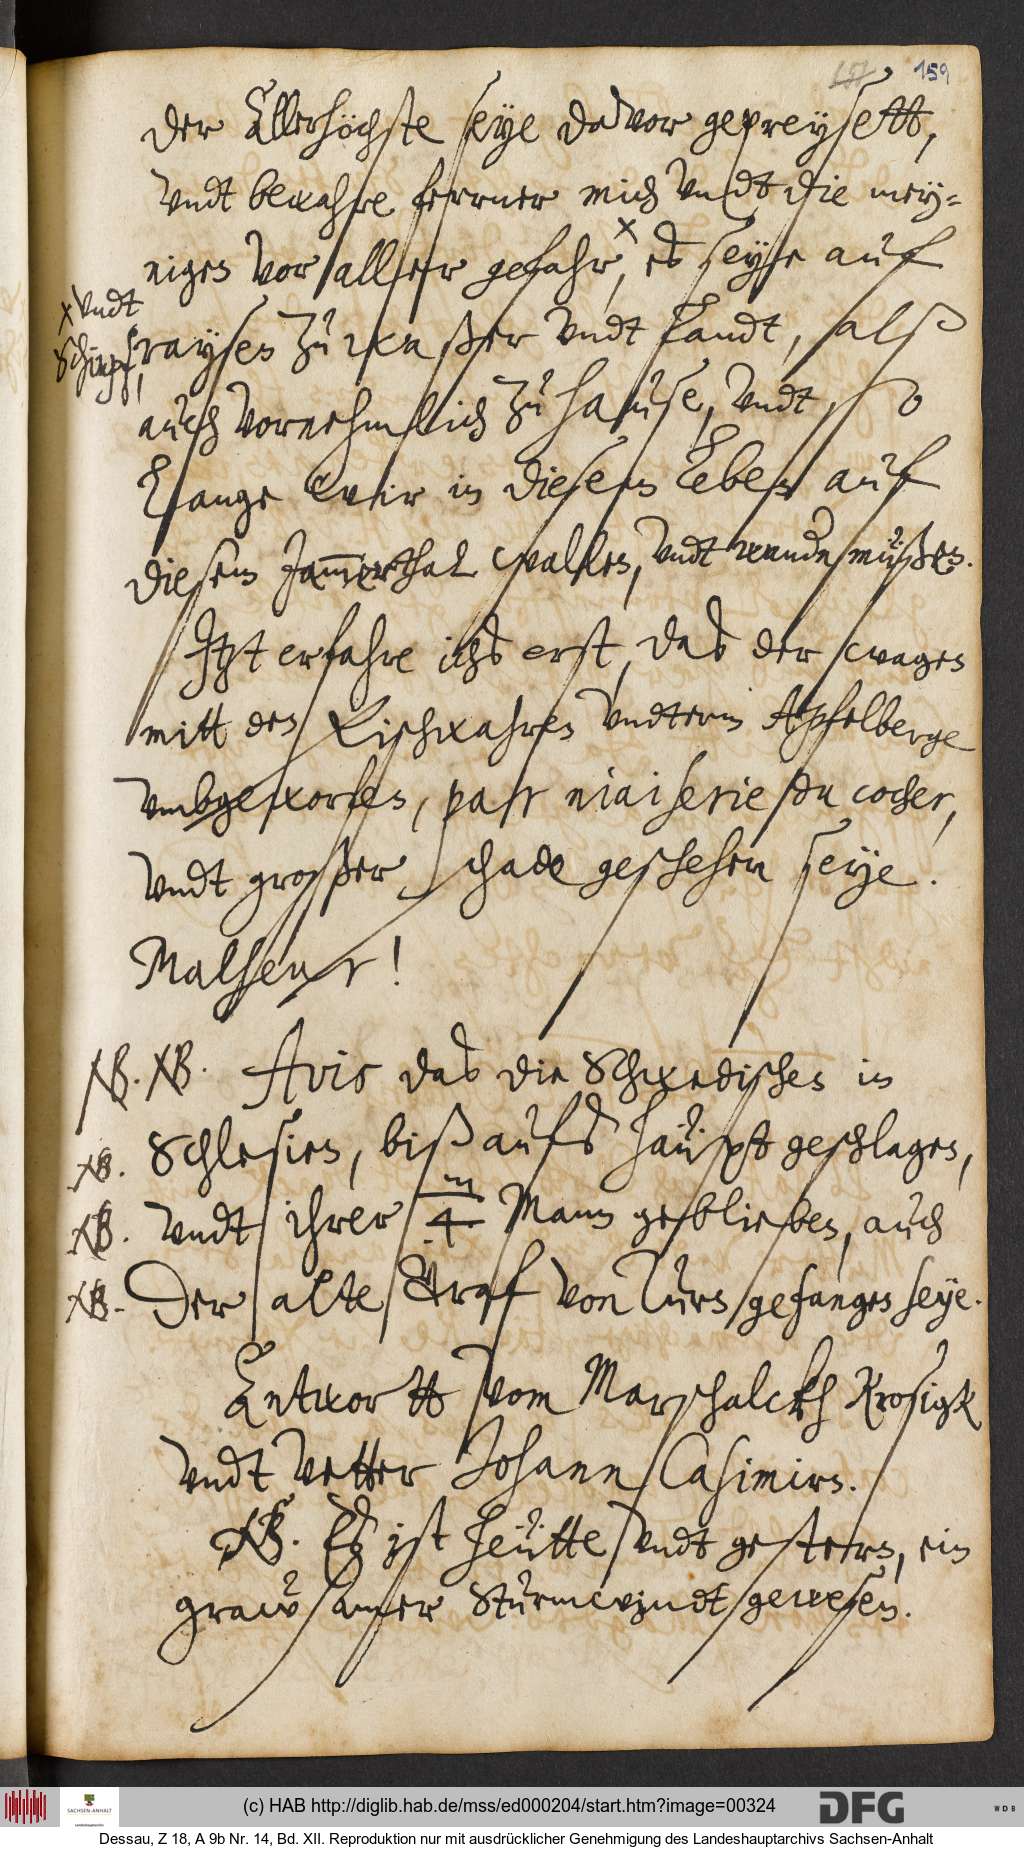 159
der Allerhöchste seye davor gepreysett,
vndt bewahre ferrner mich vndt die mey-
niges vor aller gefahr, es seye auf
x vndt
Schimpf,
raysen zu waßer vndt Landt, alß
auch vornehmlich zu hause, vndt so
Lange wir in diesem Leben auf
diesem Jam̅erthal wallen, vndt wandeln müßen.
Itzt erfahre ichs erst, das der wagen
mitt den Fischwahren vndterm Apfelberge
vmbgeworfen, par niaiserie du cocher,
vndt großer schade geschehen seye.
Malheur!
NB. NB. Avis das die Schwedischen in
NB. Schlesien, biß aufs häupt geschlagen,
NB. vndt ihrer m/4 Mann geblieben, auch
NB. Der alte Graf von Turn gefangen seye.
Antwortt vom Marschalckh Krosigk
vndt Vetter Johann Casimirn.
NB. Es ist heütte vndt gestern, ein
grawsamer Sturmwindt gewesen.
SACHSEN-ANHALT
(c) HAB http://diglib.hab.de/mss/ed000204/start.htm?image=00324
DFG
WDB
Dessau, Z 18, A 9b Nr. 14, Bd. XII. Reproduktion nur mit ausdrücklicher Genehmigung des Landeshauptarchivs Sachsen-Anhalt